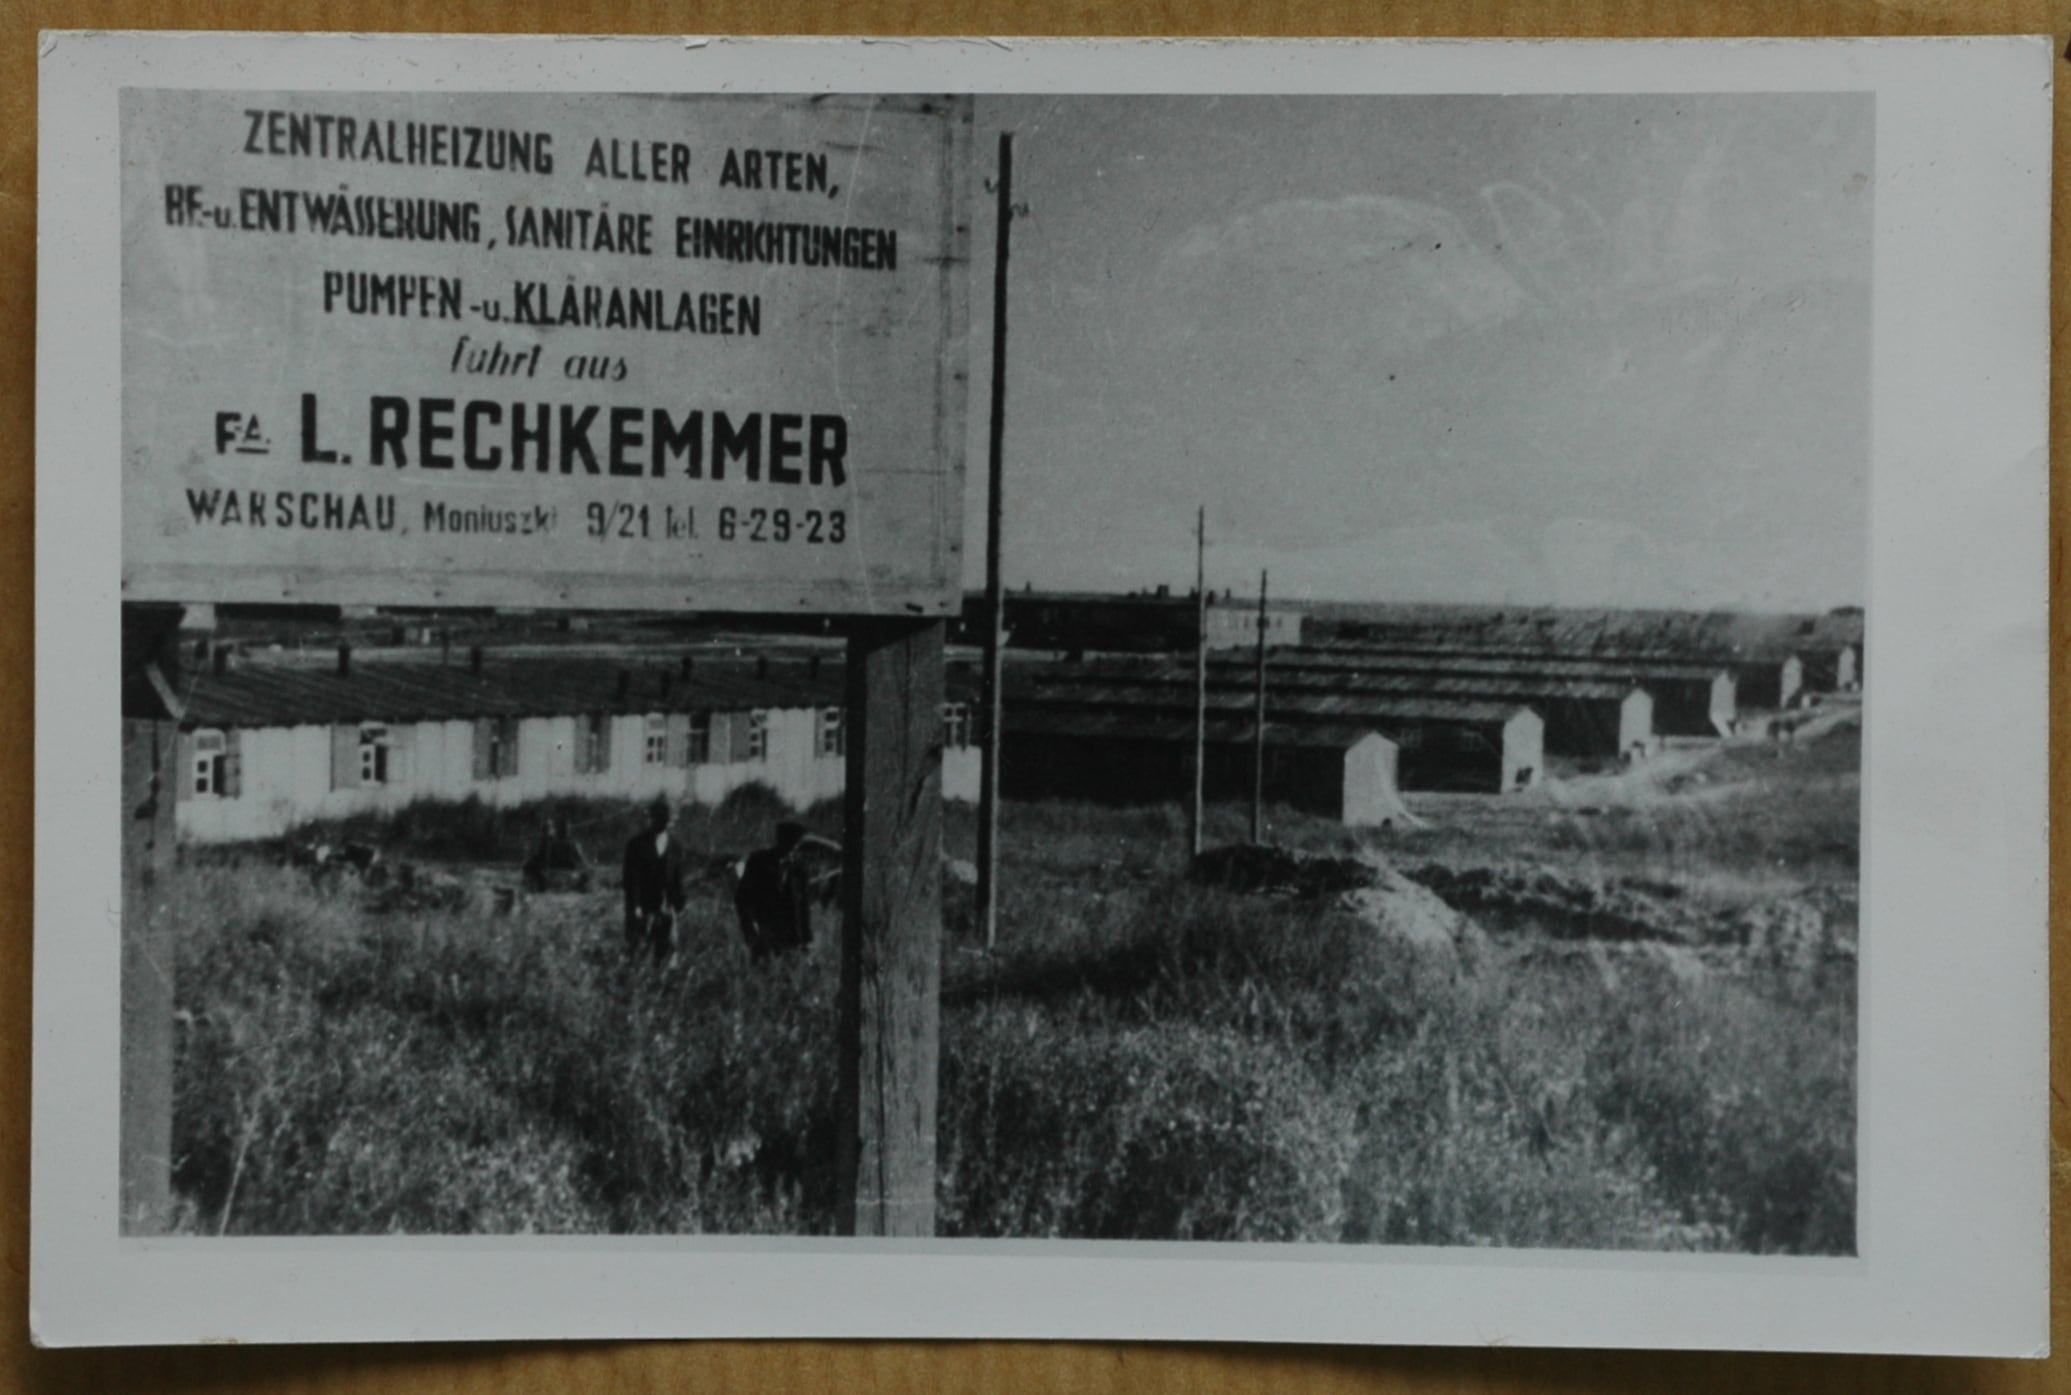 ZENTRALHEIZUNG ALLER ARTEN,
BE-u. ENTWÄSSERUNG, SANITÄRE EINRICHTUNGEN
PUMPEN-u. KLÄRANLAGEN
führt aus
FA. L. RECHKEMMER
WARSCHAU, Moniuszki 9/21 Tel. 6-29-23